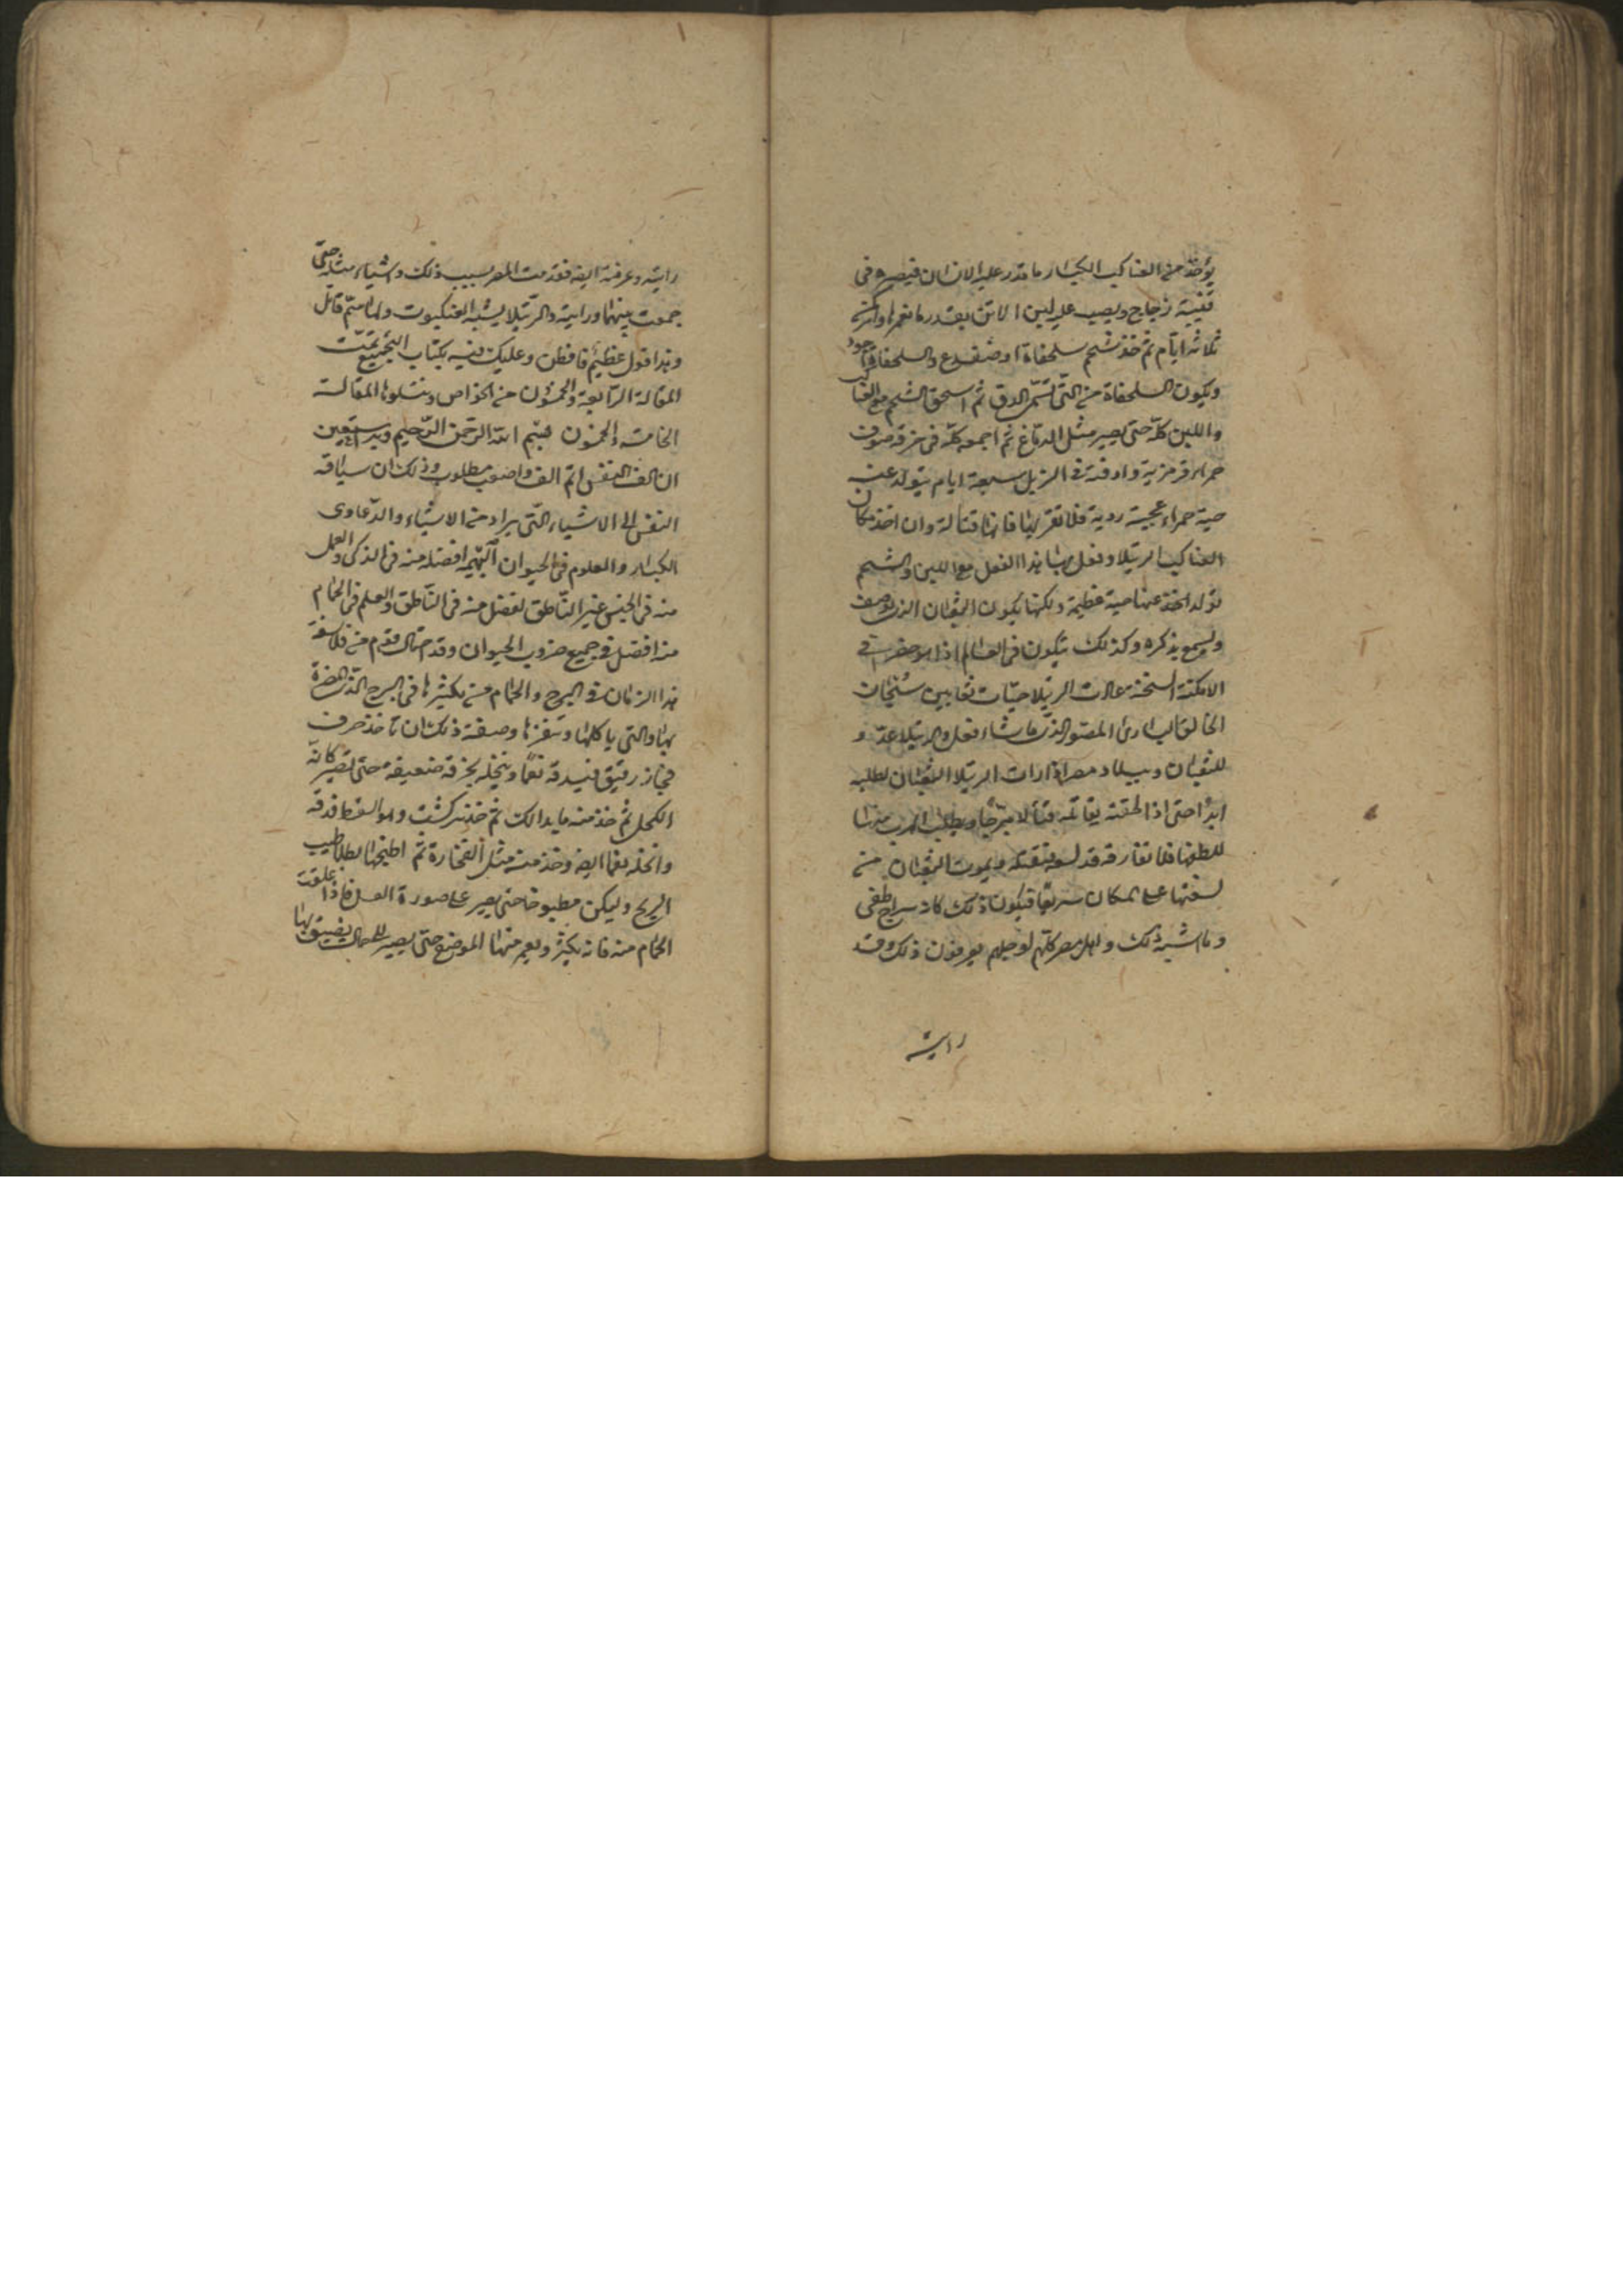 يؤخذ من العناكب الكبار ما قدر عليه الانسان فيصير فى
قنينة زجاج ويصب عليه لبن الاتن بقدر ما يغمرها واتركه
ثلاثة ايام ثم خذ شحم سلحفاة او ضفدع والسلحفاة اجود
ويكون السلحفاة من التى تسمى الدق ثم اسحق الشحم مع العناكب
واللبن كله حتى يصير مثل الدماغ ثم اجمعه كله فى خرقة صوف
حمراء قرمزية وادفنه فى الزبل سبعة ايام يتولد عنه
حية حمراء عجيبة ردية فلا تقربها فانها قتالة وان اخذ مكان
العناكب الرتيلا وفعل بها هذا الفعل مع اللبن والشحم
تولد عنها حية عظيمة ولكنها يكون الثعبان الذى يوصف
ويسمع بذكره وكذلك يتكون فى العالم اذا
الامكنة السخنة الرتيلا حيات ثعابين سبحان
الخالق البارئ المصور الذى ما شاء فعل والرتيلا عدو
للثعبان وببلاد مصر اذا رات الرتيلا الثعبان تطلبه
ابدا حتى اذا لحقته يقاتله قتالا ويطلب الهرب منها
للطلبها فلا تفارقه قد لسعته فتقتله ويموت الثعبان من
لسعتها على المكان سريعا فيكون ذلك كانه سراج طفى
وما اشبه ذلك واهل مصر كلهم او جلهم يعرفون ذلك وقد
رايته
رايته وعرفته ايضا فقد مت المصر بسبب ذلك واشياء مثله حتى
جمعت بينهما ورايته والرتيلا يشبه العنكبوت ولها سم قاتل
وهذا قول عظيم فافطن وعليك فيه بكتاب التجميع تمت
المقالة الرابعة والخمسون من الخواص ويتلوها المقالة
الخامسة والخمسون بسم الله الرحمن الرحيم وبه نستعين
ان الف النفس اتم الف واصعب مطلوب وذلك ان سياقة
النفس الى الاشياء التى يراد من الاشياء والدعاوى
الكبار والعلوم فى الحيوان البهيم افضله منه فى الذكى والعمل
منه فى الجنس غير الناطق افضل منه فى الناطق والعلم فى الحمام
منه افضل فى جميع ضروب الحيوان وقد احتال قوم من فلاسفة
هذا الزمان فى البرج والحمام من يكثرها فى البرج الذى
بها والتى ياكلها وصفة ذلك ان تاخذ خزف
فخار رقيق فيدقه نعما وينخله بخرقة ضعيفة حتى تصير كانه
الكحل ثم خذ منه ما بدا لك ثم خذ كشت وهو القسط فدقه
وانخله نعما ايضا وخذ منه مثل الفخارة ثم اطبخها بطلا طيب
الريح وليكن مطبوخا حتى يصير على صورة العسل فاذا علقت
الحمام منه فانه يكثر ويعم منها الموضع حتى يصير للحال يضيق بها